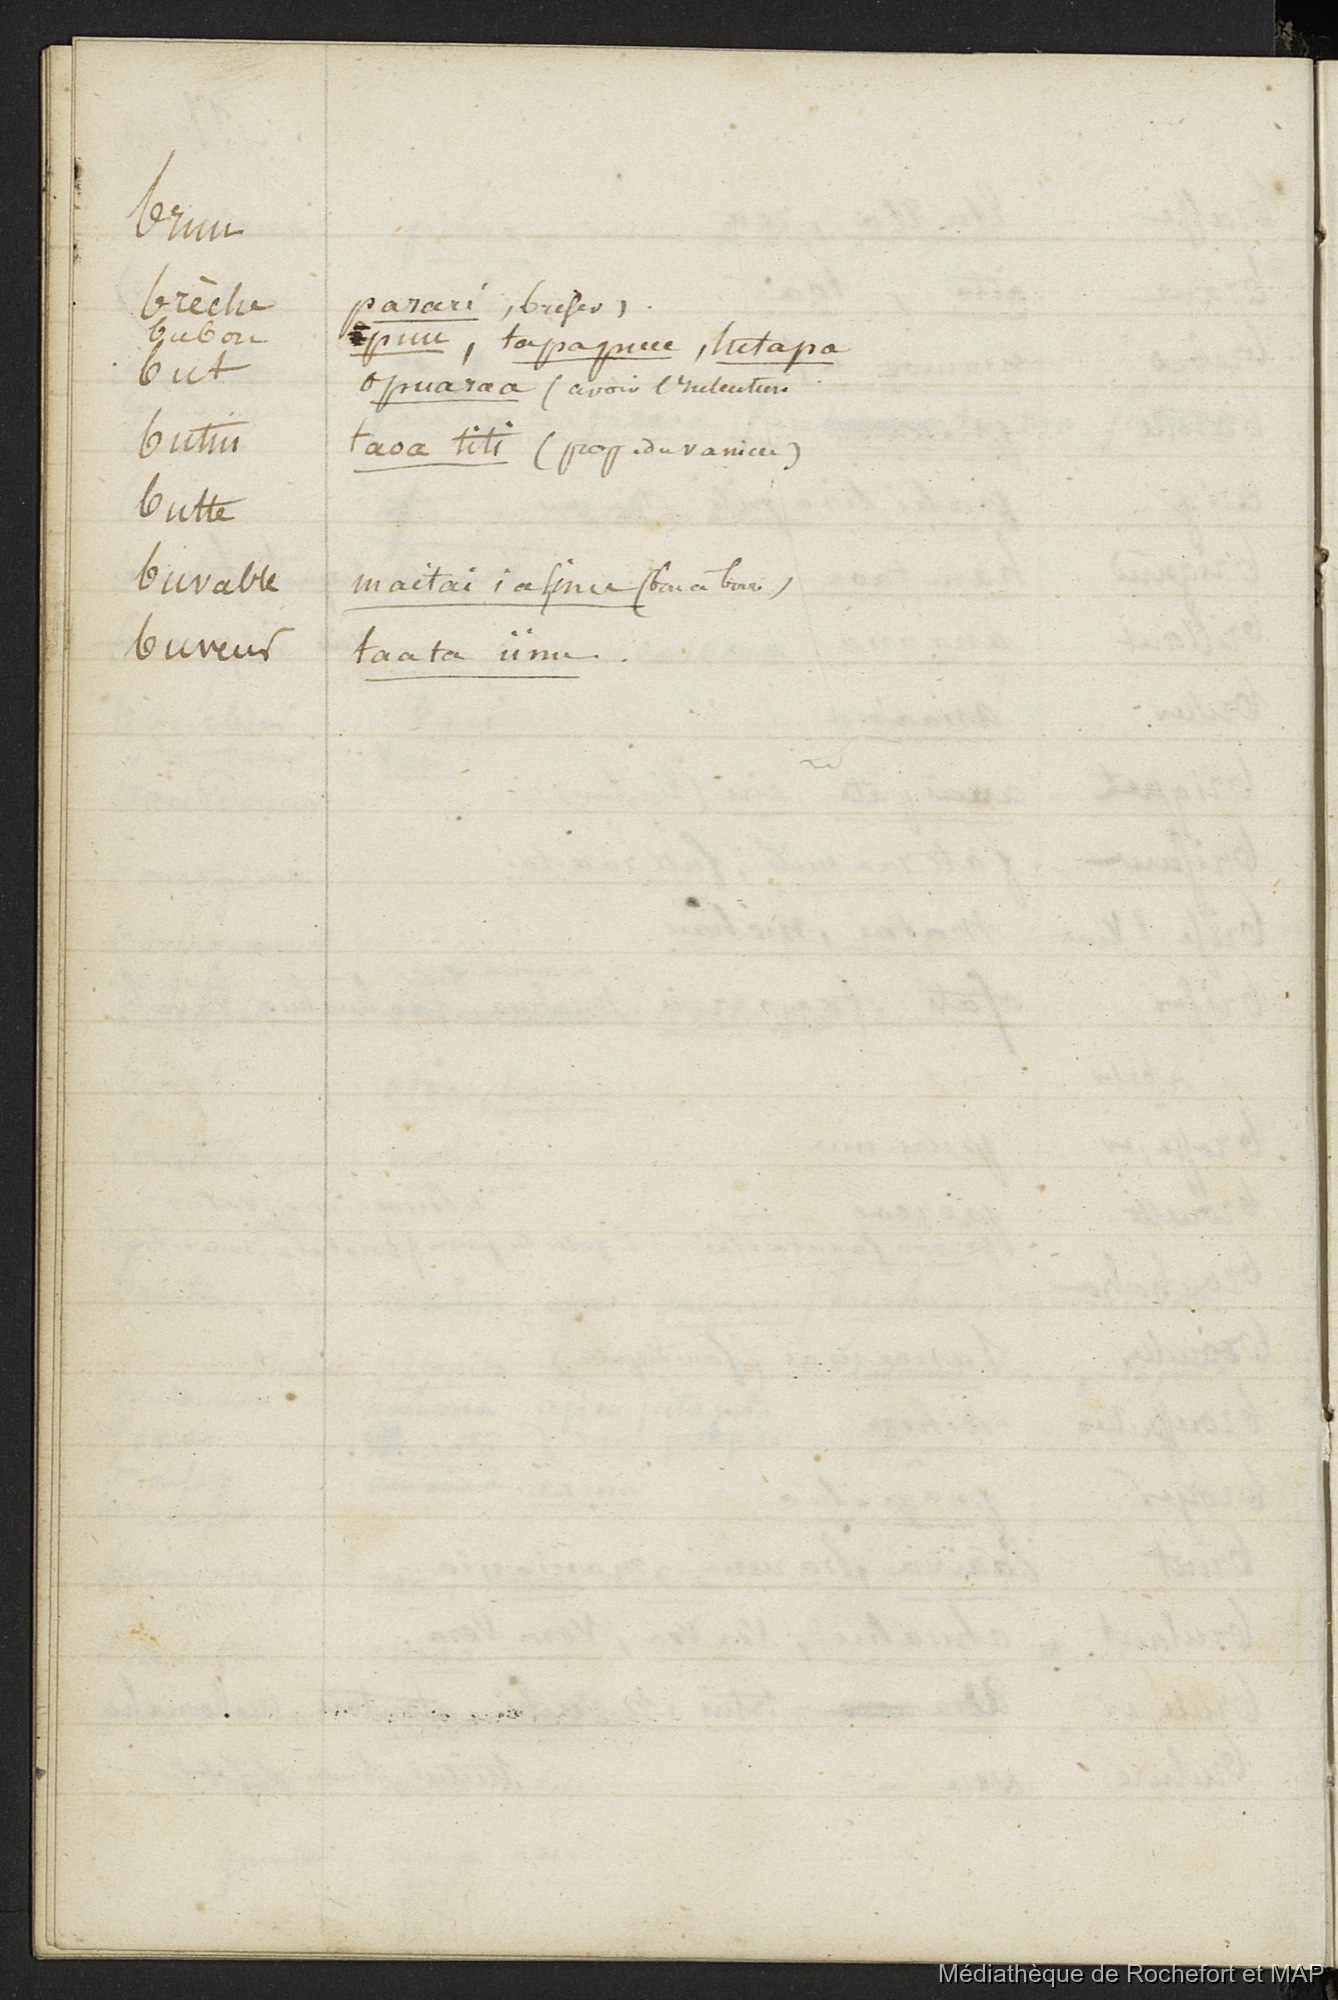 brun
brèche parari, briser)
bubon puu, tapapuu, hutapa
but opuaraa (avoir l'intention
butin taoa titi (prop. du vaincu)
butte
buvable maitai ia inu (bon a boire)
buveur taata iinu.
Médiathèque de Rochefort et MAP